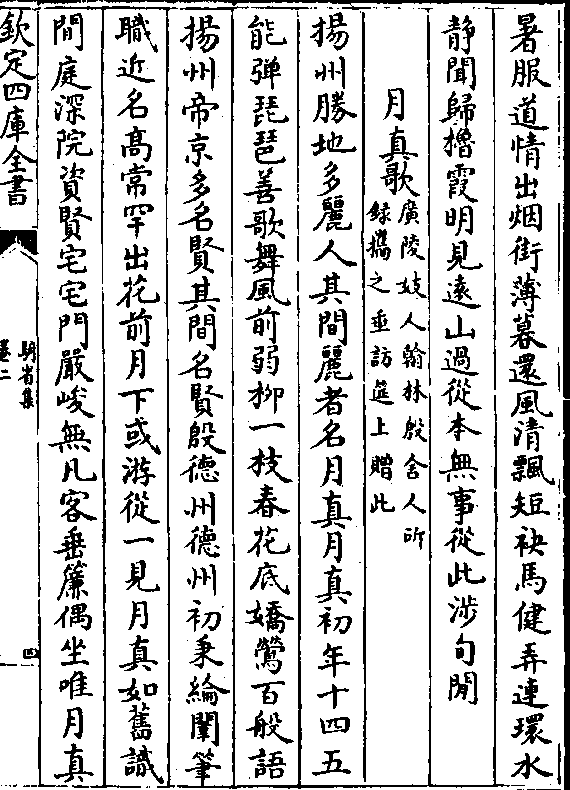 暑服道情出烟街薄暮還風清飄短袂馬健弄連環水
静聞歸櫓霞明見遠山過從本無事從此涉旬閒
月真歌廣陵妓人翰林殷舍人所
録攜之垂訪筵上贈此
揚州勝地多麗人其間麗者名月真月真初年十四五
能弹琵琶善歌舞風前弱栁一枝春花底嬌鶯百般語
揚州帝京多名賢其間名賢殷徳州徳州初秉綸闈筆
職近名髙常罕出花前月下或游從一見月真如舊識
閒庭深院資賢宅宅門嚴峻無凡客垂簾偶坐唯月真
欽定四庫全書
騎省集
卷二
四